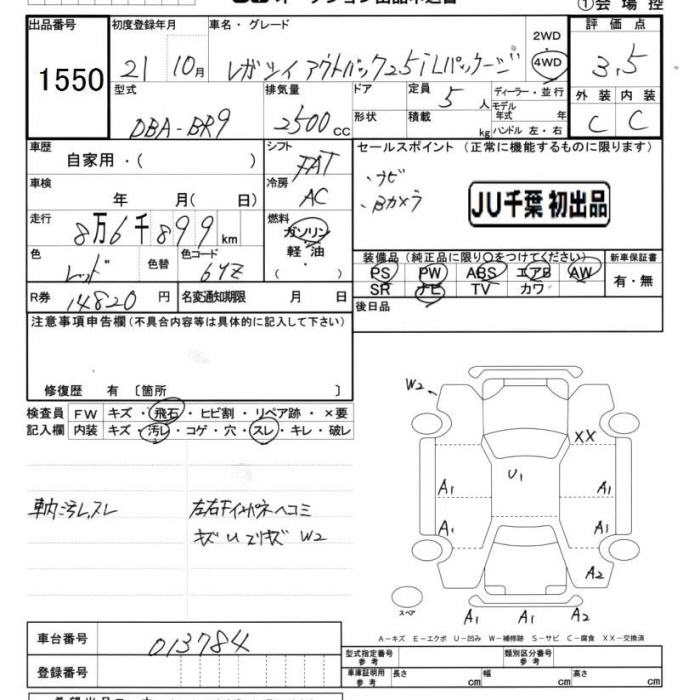 ①会場控
出品番号 初度登録年月 車名・グレード 2WD 評価点
1550 21 10月 レガシィ アウトバック2.5iLパッケージ 4WD 3.5
型式 排気量 ドア 定員 5 人 ディーラー・並行 外装 内装
DBA-BR9 2500 CC 形状 積載 kg モデル年式 年 ハンドル 左・右 C C
車歴 自家用・( ) シフト FAT セールスポイント (正常に機能するものに限ります)
車検 年 月( 日) 冷房 AC ・ナビ
・Bカメラ JU千葉 初出品
走行 8万6千899km 燃料 ガソリン 軽・油 ( )
色 レッド 色替 色コード 64Z
装備品 (純正品に限り○をつけてください) 新車保証書
PS PW ABS エアB AW 有・無
SR ナビ TV カワ
R券 14820 円 名変通知期限 月 日 後日品
注意事項申告欄 (不具合内容等は具体的に記入して下さい)
修復歴 有 〔箇所 〕
検査員 FW キズ・飛石・ヒビ割・リペア跡・×要
記入欄 内装 キズ・汚レ・コゲ・穴・スレ・キレ・破レ
W2
XX
U1
A1 A1
A1 A1
A2
スペア A1 A1 A1
車内汚レ、スレ 左右Fインパネヘコミ
キズ U エクリキズ W2
A-キズ E-エクボ U-凹み W-補修跡 S-サビ C-腐食 XX-交換済
車台番号 013784
登録番号
型式指定番号 参考 類別区分番号 参考
車庫証明用 参考 長さ cm 幅 cm 高さ cm